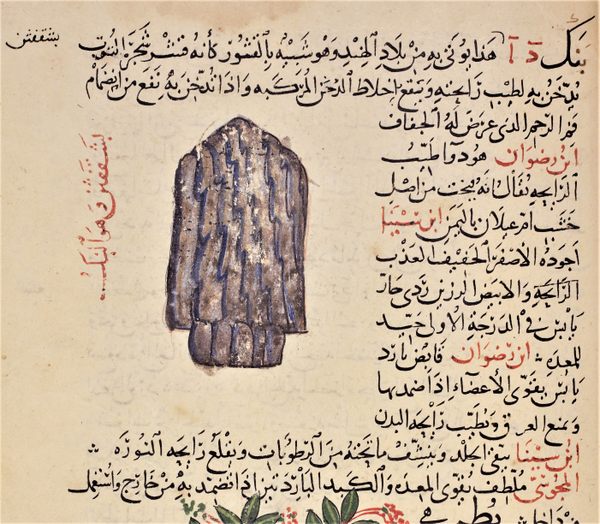 بشقفش
بنك د آ هذا يؤتى به من بلاد الهند وهو شبيه بالقشور كأنه قشر شجر التوت
يدخن به لطيب رائحته ويقع في اخلاط الدخن المركبه واذا تدخن به نفع من انضمام
فم الرحم الذى عرض له الجفاف
ابن رضوان هو دوآ طيب
الرايحه يقال انه ينحت من اصل
خشب ام غيلان باليمن ابن سينا
اجوده الاصفر الخفيف العذب
الرائحة والابيض الرزين ردى حار
يابس في الدرجة الاولى جيد
للمعده ابن رضوان قابض بارد
يابس يقوى الأعضاء اذا ضمد بها
ويمنع العرق ويطيب رايحه البدن
ابن سينا ينقى الجلد وينشف ما تحته من الرطوبات ويقلع رايحه النوره
المجوسى ملطف يقوى المعده والكبد الباردتين اذا تضمد به من خارج واستعمل
بشقفش وهو البنك